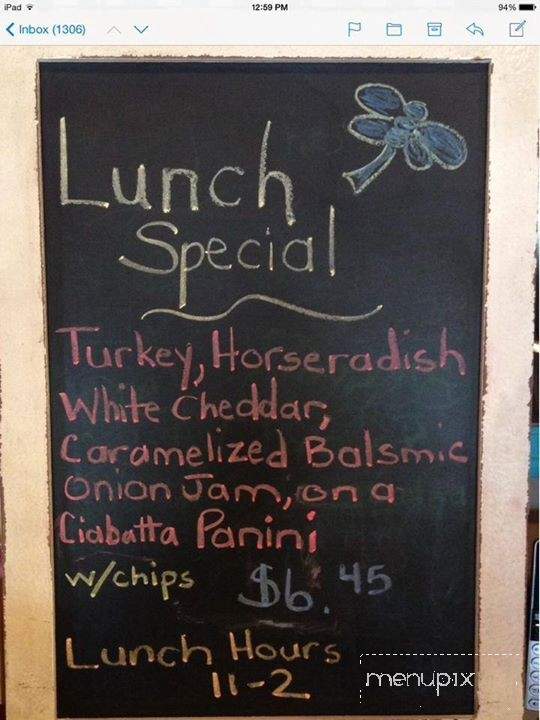 iPad 12:59 PM 94%
Inbox (1306)
Lunch
Special
Turkey, Horseradish
White Cheddar,
Caramelized Balsmic
Onion Jam, on a
Ciabatta Panini
w/chips $6.45
Lunch Hours
11-2
menupix